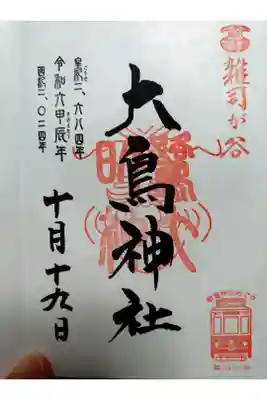 雑司が谷
大鳥神社
皇紀二、六八四年
令和六甲辰年
西紀二、〇二四年
十月十九日